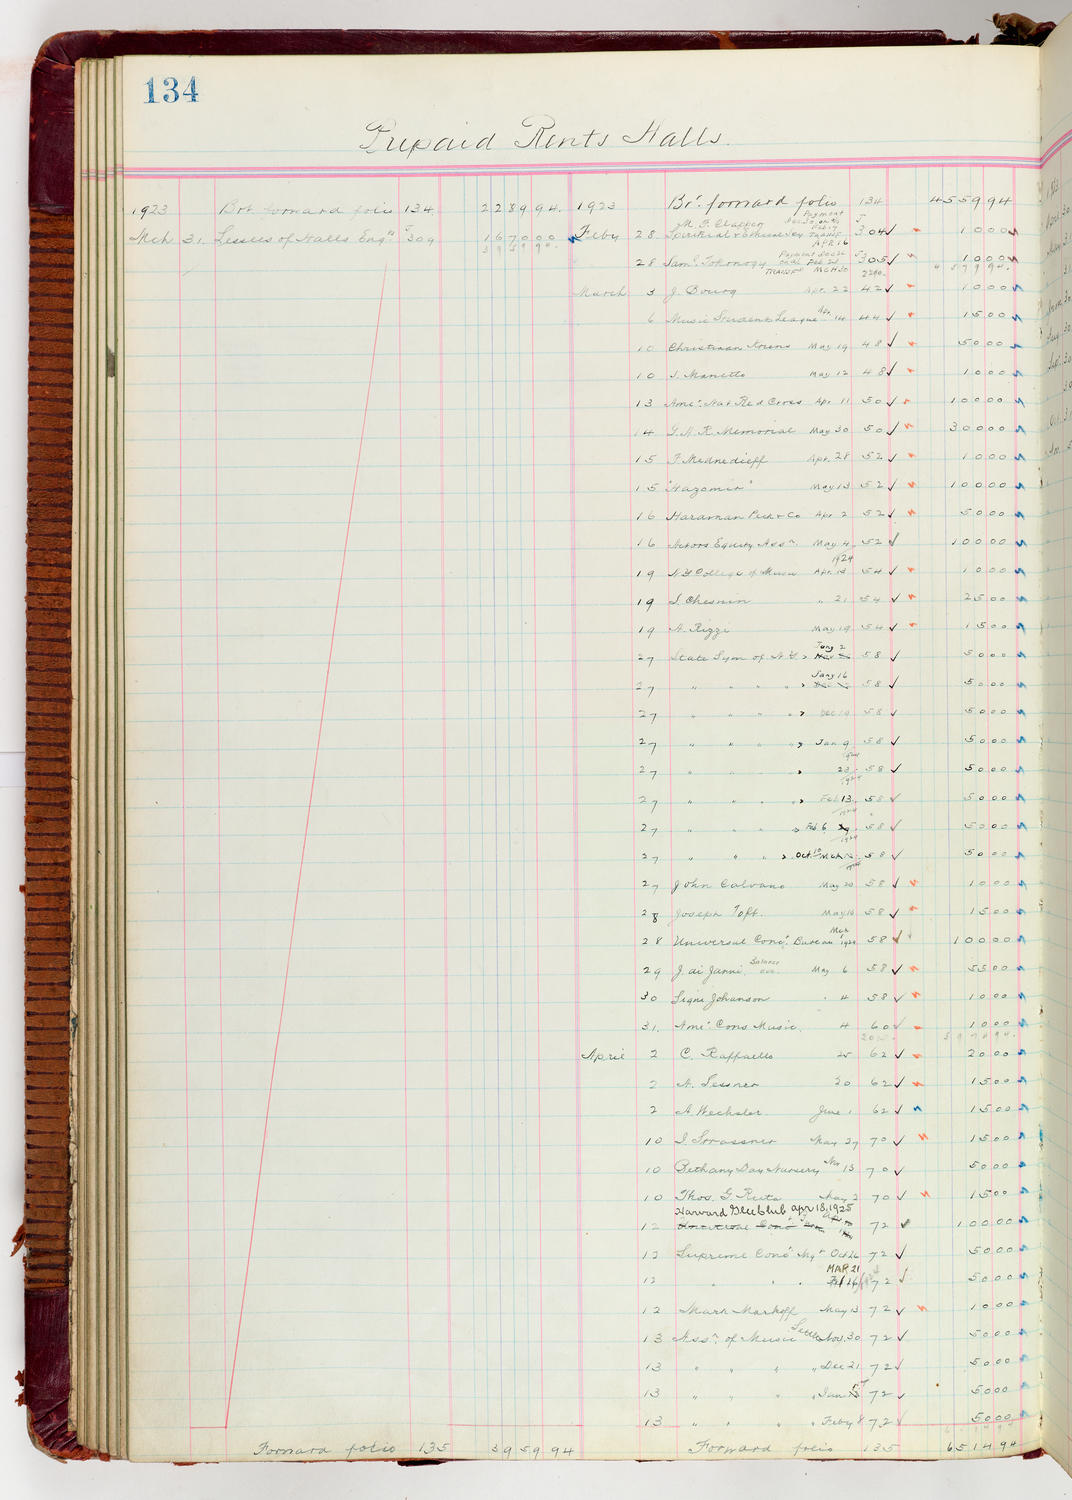 134
Prepaid Rents Halls.
1923 Brt forward folio 134 2289 94
Mch 31. Lessees of Halls Eng.ts J 309 1670 00
3959 94
1923 Brt forward folio 134 4559 94
M. F. Clappen Payment
Feby 28 Spiritual & Ethical Socy APR 16 304 10 00
28 Saml Tokonogy TRANSFD MCH 30 305 10 00
2290. 4579 94.
March 3 J. Bourg Apr. 22 42 10 00
6 Music Students League Apr. 14 44 15 00
10 Christiaan Kriens May 19 48 50 00
10 J. Manetto May 12 48 10 00
13 Amer. Nat Red Cross Apr 11 50 100 00
14 G.A.R. Memorial May 30 50 300 00
15 F. Mednedieff Apr. 28 52 10 00
15 "Hazomir" May 13 52 100 00
16 Hardman Peck & Co Apr 2 52 50 00
16 Actors Equity Assn. May 4 52 100 00
1924
19 N.Y. College of Music Apr. 13 54 10 00
19 I. Chesnin " 21 54 25 00
19 A. Rizzi May 19 54 15 00
27 State Sym of N.Y. Jany 2 58 50 00
27 " " " " Jany 16 58 50 00
27 " " " " Dec 19 58 50 00
27 " " " " Jan 9 58 50 00
1924
27 " " " " 23 58 50 00
1924
27 " " " " Feb 13 58 50 00
1924
27 " " " " Feb 6 58 50 00
1924
27 " " " " Oct. 10 Mch 58 50 00
27 John Calvano May 20 58 10 00
28 Joseph Toft. May 10 58 15 00
28 Universal Conc.t Bureau Mch 1924 58 100 00
29 J. di Janni Balance May 6 58 55 00
30 Signe Johanson " 4 58 10 00
31. Amer. Cons Music. 4 60 10 00
April 2 C. Raffaello 25 62 20 00
2 A. Lessner 30 62 15 00
2 A. Wechsler June 1 62 15 00
10 I. Strassner May 27 70 15 00
10 Bethany Day Nursery Nov 13 70 50 00
10 Thos. G. Ruta May 2 70 15 00
Harvard Glee Club apr 18, 1925
12 72 100 00
12 Supreme Conc.t Mgt Oct 26 72 50 00
MAR 21
12 " " " Feb 26 72 50 00
12 Mark Markoff May 13 72 10 00
13 Assn. of Music Nov. 30 72 50 00
13 " " " " Dec 21 72 50 00
13 " " " " Jan 5 72 50 00
13 " " " " Feby 8 72 50 00
Forward folio 135 3959 94
Forward folio 135 6514 94